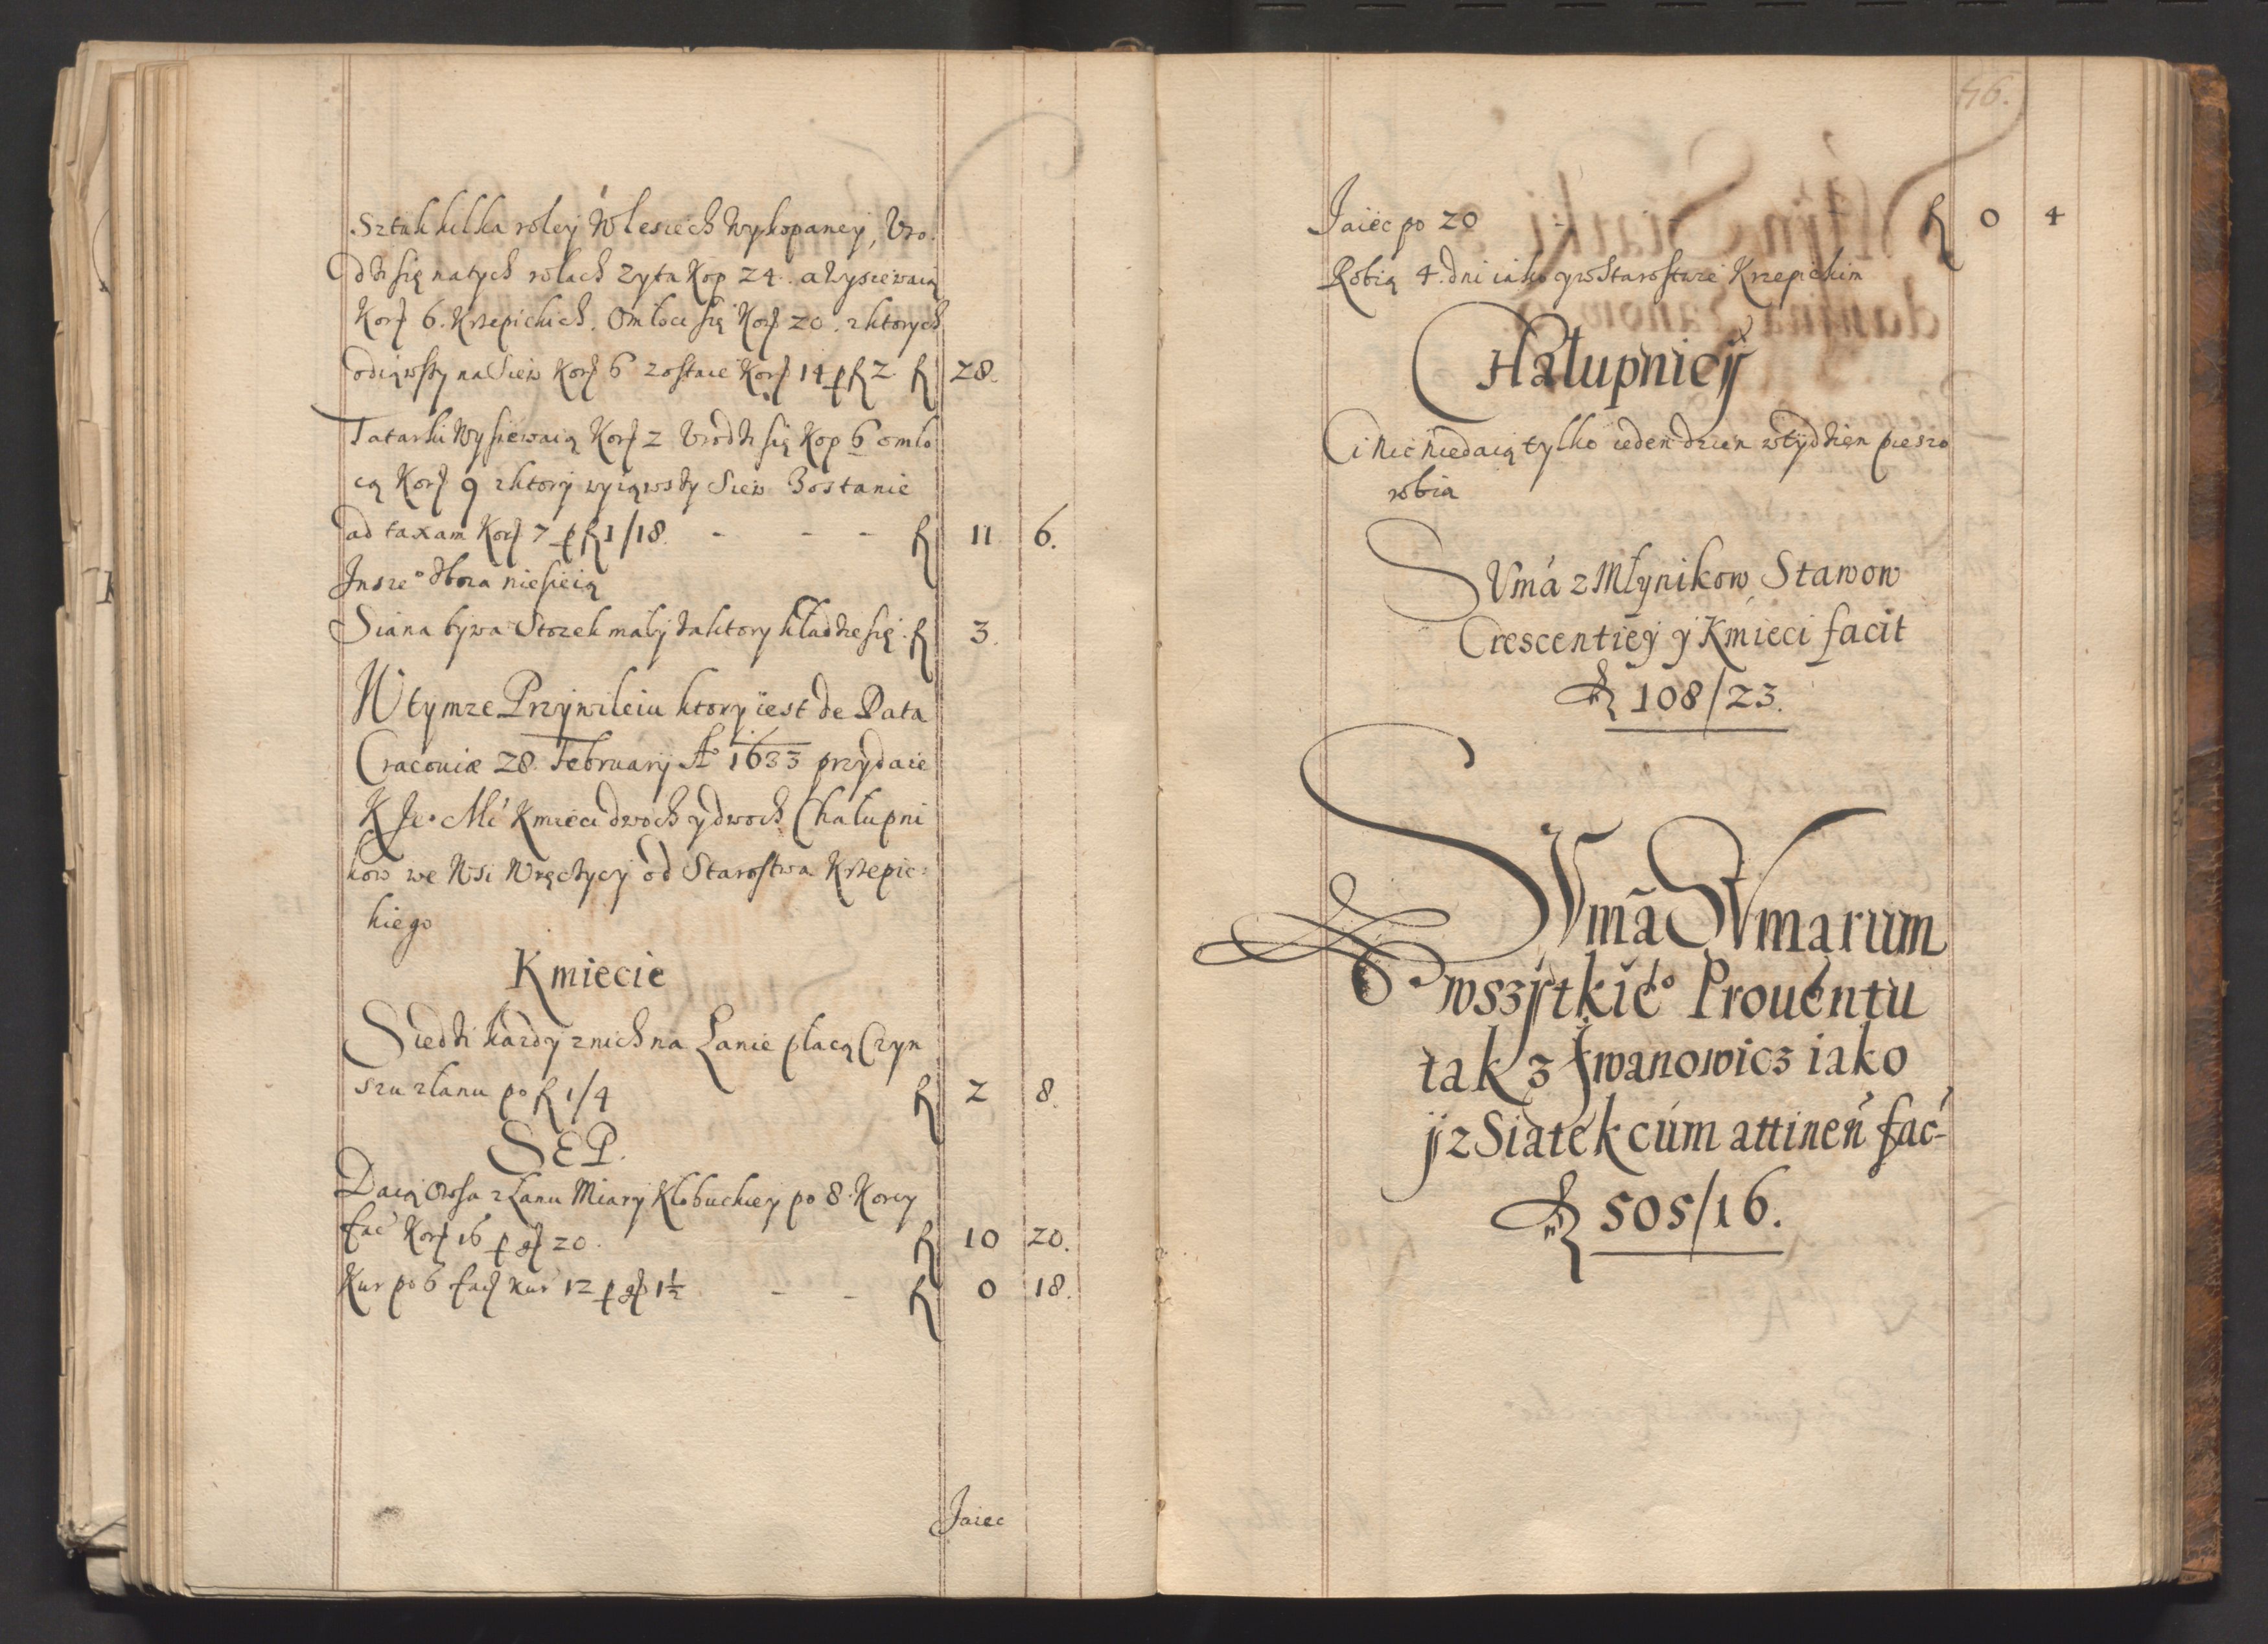 Sztuk kilka roley W lesiech Wykopaney, Vro
dzi się na tych rolach Zyta Kop 24. a Wysiewaią
Korƺ 6. Krzepickich. Omłoci się Korƺ 20. z ktorych
odiąwszy na Siew Korƺ 6 zostaie Korƺ 14 p fl 2. fl 28.
Tatarki Wysiewaią Korƺ 2 Vrodzi się Kop 6 omło
cą Korƺ 9 z ktory wyiąwszy Siew Zostanie
ad taxam Korƺ 7 p fl 1/18. - - - fl 11 6.
Insze° Zboza niesieią
Siana bywa Stozek mały za ktory kładzie się. fl 3.
W tymze Przywileiu ktory iest de Data
Cracouiæ 28. February A° 1633 przydaie
K Je° Mć Kmieci dwoch y dwoch Chałupni
kow we Wsi Wręczycy od Starostwa Krzepic:
kiego
Kmiecie
Siedzi kazdy z nich na Łanie płacą Czyn
szu z łanu po fl 1/4 fl 2 8.
SEP.
Daią Owsa z Łanu Miary Kłobuckiey po 8. Korcy
fac Korƺ 16 p gƺ 20. fl 10 20.
Kur po 6 facƺ kur 12 p gƺ 1½ - - fl 0 18.
Jaiec
56.
Jaiec po 20 - - fl 0 4
Robią 4. dni iako y w Starostwie Krzepickim
Chałupnicy
Ci Nic niedaią tylko ieden dzien w tydzien pieszo
robią
SVmá z Młynikow, Stawow
Crescentiey y Kmieci facit
fl 108/23.
SVmā SVmarum
wszÿtkie° Prouentu
tak z Iwanowicz iako
ÿ z Siatek cum attineń fac-
fl 505/16.